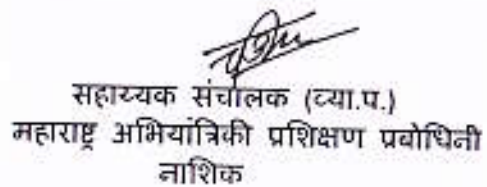 सहाय्यक संचालक (व्या.प.)
महाराष्ट्र अभियांत्रिकी प्रशिक्षण प्रबोधिनी
नाशिक